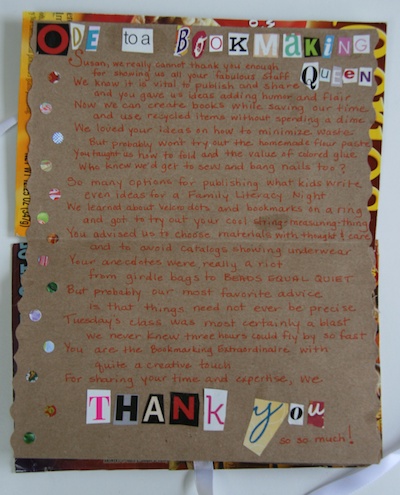 ODE to a BOOKMAKING
QUEEN
Susan, we really cannot thank you enough
for showing us all your fabulous stuff
We know it is vital to publish and share
and you gave us ideas adding humor and flair
Now we can create books while saving our time
and use recycled items without spending a dime
We loved your ideas on how to minimize waste
But probably won't try out the homemade flour paste
You taught us how to fold and the value of colored glue
Who knew we'd get to sew and bang nails too?
So many options for publishing what kids write
even ideas for a Family Literacy Night
We learned about velcro dots and bookmarks on a ring
and got to try out your cool string-measuring-thing
You advised us to choose materials with thought & care
and to avoid catalogs showing underwear
Your anecdotes were really a riot
From girdle bags to BEADS EQUAL QUIET
But probably our most favorite advice
is that things need not ever be precise
Tuesday's class was most certainly a blast
we never knew three hours could fly by so fast
You are the Bookmarking Extraordinaire with
quite a creative touch
For sharing your time and expertise, we
THANK you
so so much!